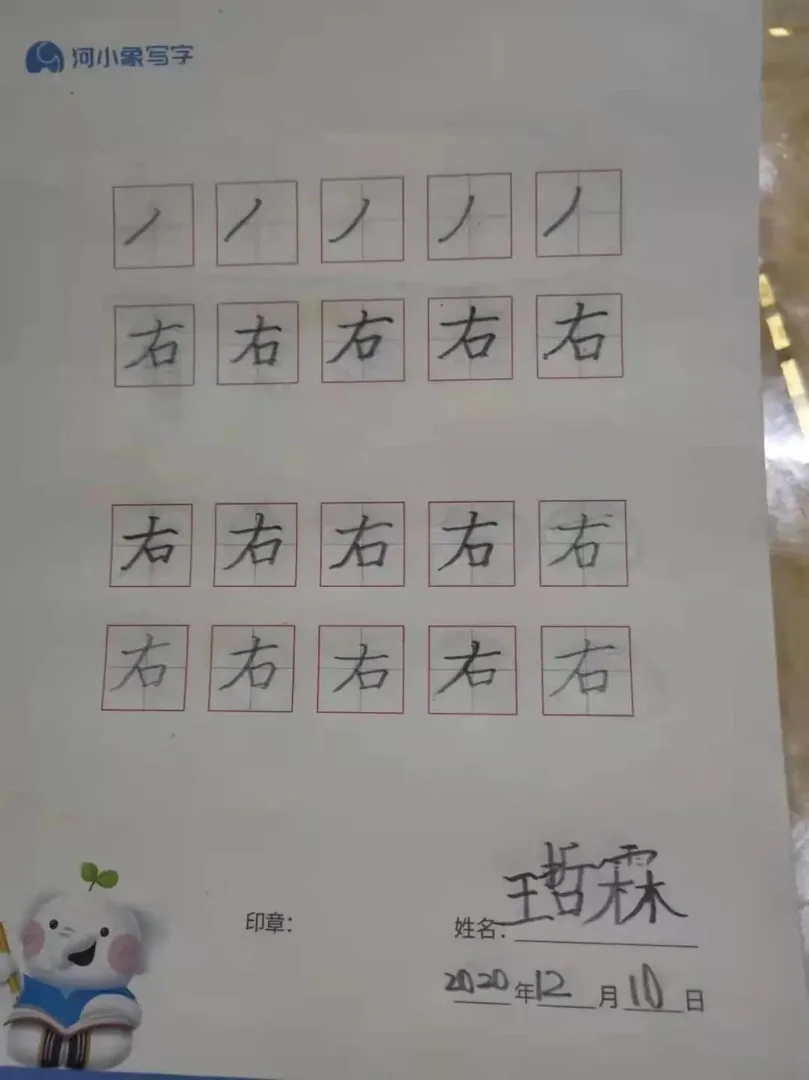 河小象写字
丿 丿 丿 丿 丿
右 右 右 右 右
右 右 右 右 右
右 右 右 右 右
印章：
姓名：王哲霖
2020年12月10日